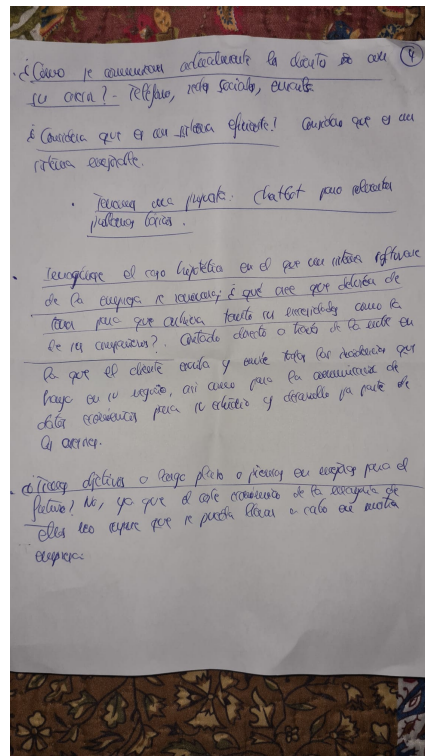 · ¿Cómo se comunican actualmente los clientes con 4
su asesor? - Teléfono, redes sociales, emails
¿Considera que es un sistema eficiente? Considero que es un
sistema mejorable.
· Tenemos una propuesta: Chatbot para solventar
problemas lógicos.
· Imagínese el caso hipotético en el que un sistema software
de la empresa se renueva; ¿qué cree que debería de
tener para que cubriera tanto sus necesidades como la
de sus compañeros?. Contacto directo a través de la nube en
la que el cliente escriba y envíe todas las incidencias que
haya en su negocio, así como para la comunicación de
datos económicos para su estudio y desarrollo por parte de
los asesores.
· ¿Tienes objetivos a largo plazo o piensas en mejoras para el
futuro? No, ya que el coste económico de la mayoría de
ellos no supone que se pueda llevar a cabo en nuestra
empresa.